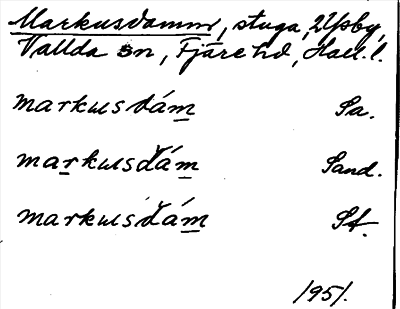 Markusdamm, stuga, Uppby,
Vallda sn, Fjäre hd, Hall. l.
markusdám Sa.
markusdám Sand.
markusdám St.
1951.